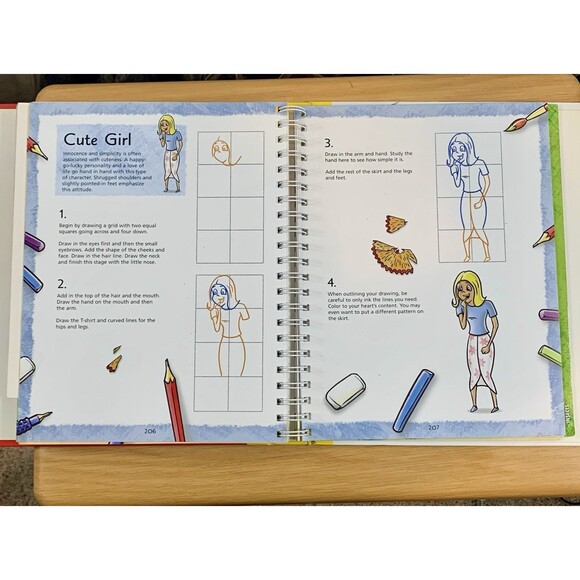 Cute Girl
Innocence and simplicity is often
associated with cuteness. A happy-
go-lucky personality and a love of
life go hand in hand with this type
of character. Shrugged shoulders and
slightly pointed-in feet emphasize
this attitude.
1.
Begin by drawing a grid with two equal
squares going across and four down.
Draw in the eyes first and then the small
eyebrows. Add the shape of the cheeks and
face. Draw in the hair line. Draw the neck
and finish this stage with the little nose.
2.
Add in the top of the hair and the mouth.
Draw the hand on the mouth and then
the arm.
Draw the T-shirt and curved lines for the
hips and legs.
206
3.
Draw in the arm and hand. Study the
hand here to see how simple it is.
Add the rest of the skirt and the legs
and feet.
4.
When outlining your drawing, be
careful to only ink the lines you need.
Color to your heart's content. You may
even want to put a different pattern on
the skirt.
207